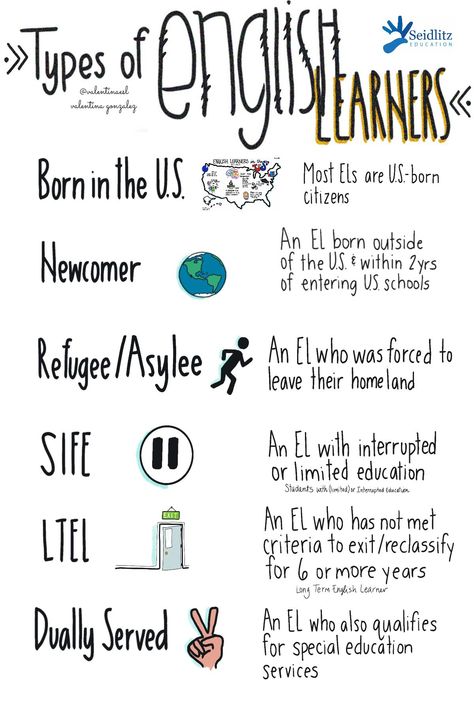 Types of english LEARNERS
@valentinaesl
valentina gonzalez
Seidlitz
EDUCATION
Born in the U.S.
ENGLISH LEARNERS in the
Most Els are U.S.-born
citizens
Newcomer
An El born outside
of the U.S. & within 2yrs
of entering U.S. schools
Refugee/Asylee
An El who was forced to
leave their homeland
SIFE
An El with interrupted
or limited education
Students with (limited) or Interrupted Education
LTEL
EXIT
An El who has not met
criteria to exit/reclassify
for 6 or more years
Long Term English Learner
Dually Served
An El who also qualifies
for special education
services